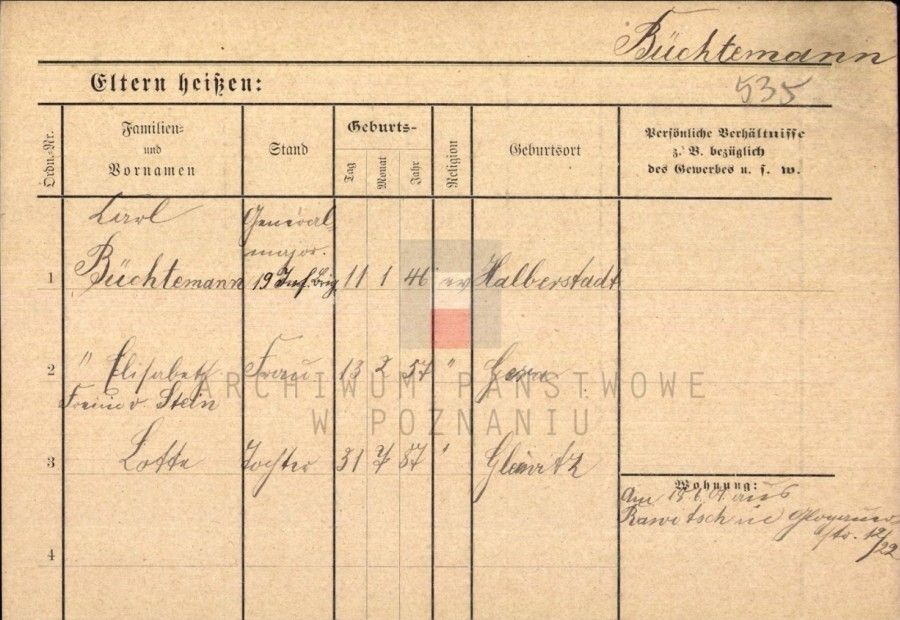 Büchtemann
535
Eltern heißen:
Ordn.-Nr.
Familien- und Vornamen
Stand
Geburts-
Tag
Monat
Jahr
Religion
Geburtsort
Persönliche Verhältnisse
z. B. bezüglich
des Gewerbes u. s. w.
Carl
General-
major.
1 Büchtemann 19 Inf. Brig 11 1 46 ev Halberstadt
2 " Elisabeth Frau 13 2 57 " Gera
v. Stein
3 Lotte Tochter 31 87 " Gleiwitz
Wohnung:
Am aus
Rawitsch Glogauer-
str. 12/22
4
ARCHIWUM PAŃSTWOWE
W POZNANIU